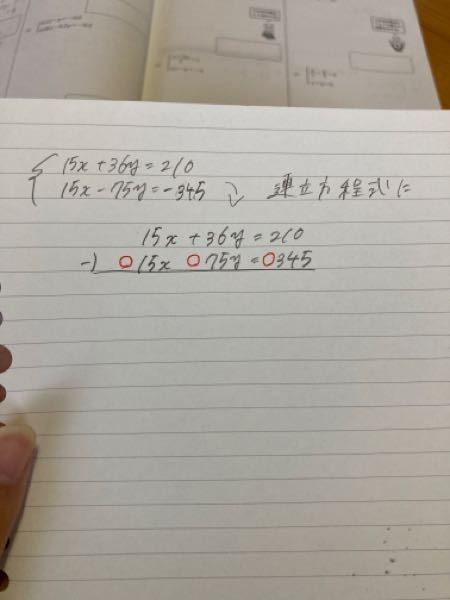 15x+36y=210
15x-75y=-345
連立方程式に
15x+36y=210
-) ○15x ○75y=○345